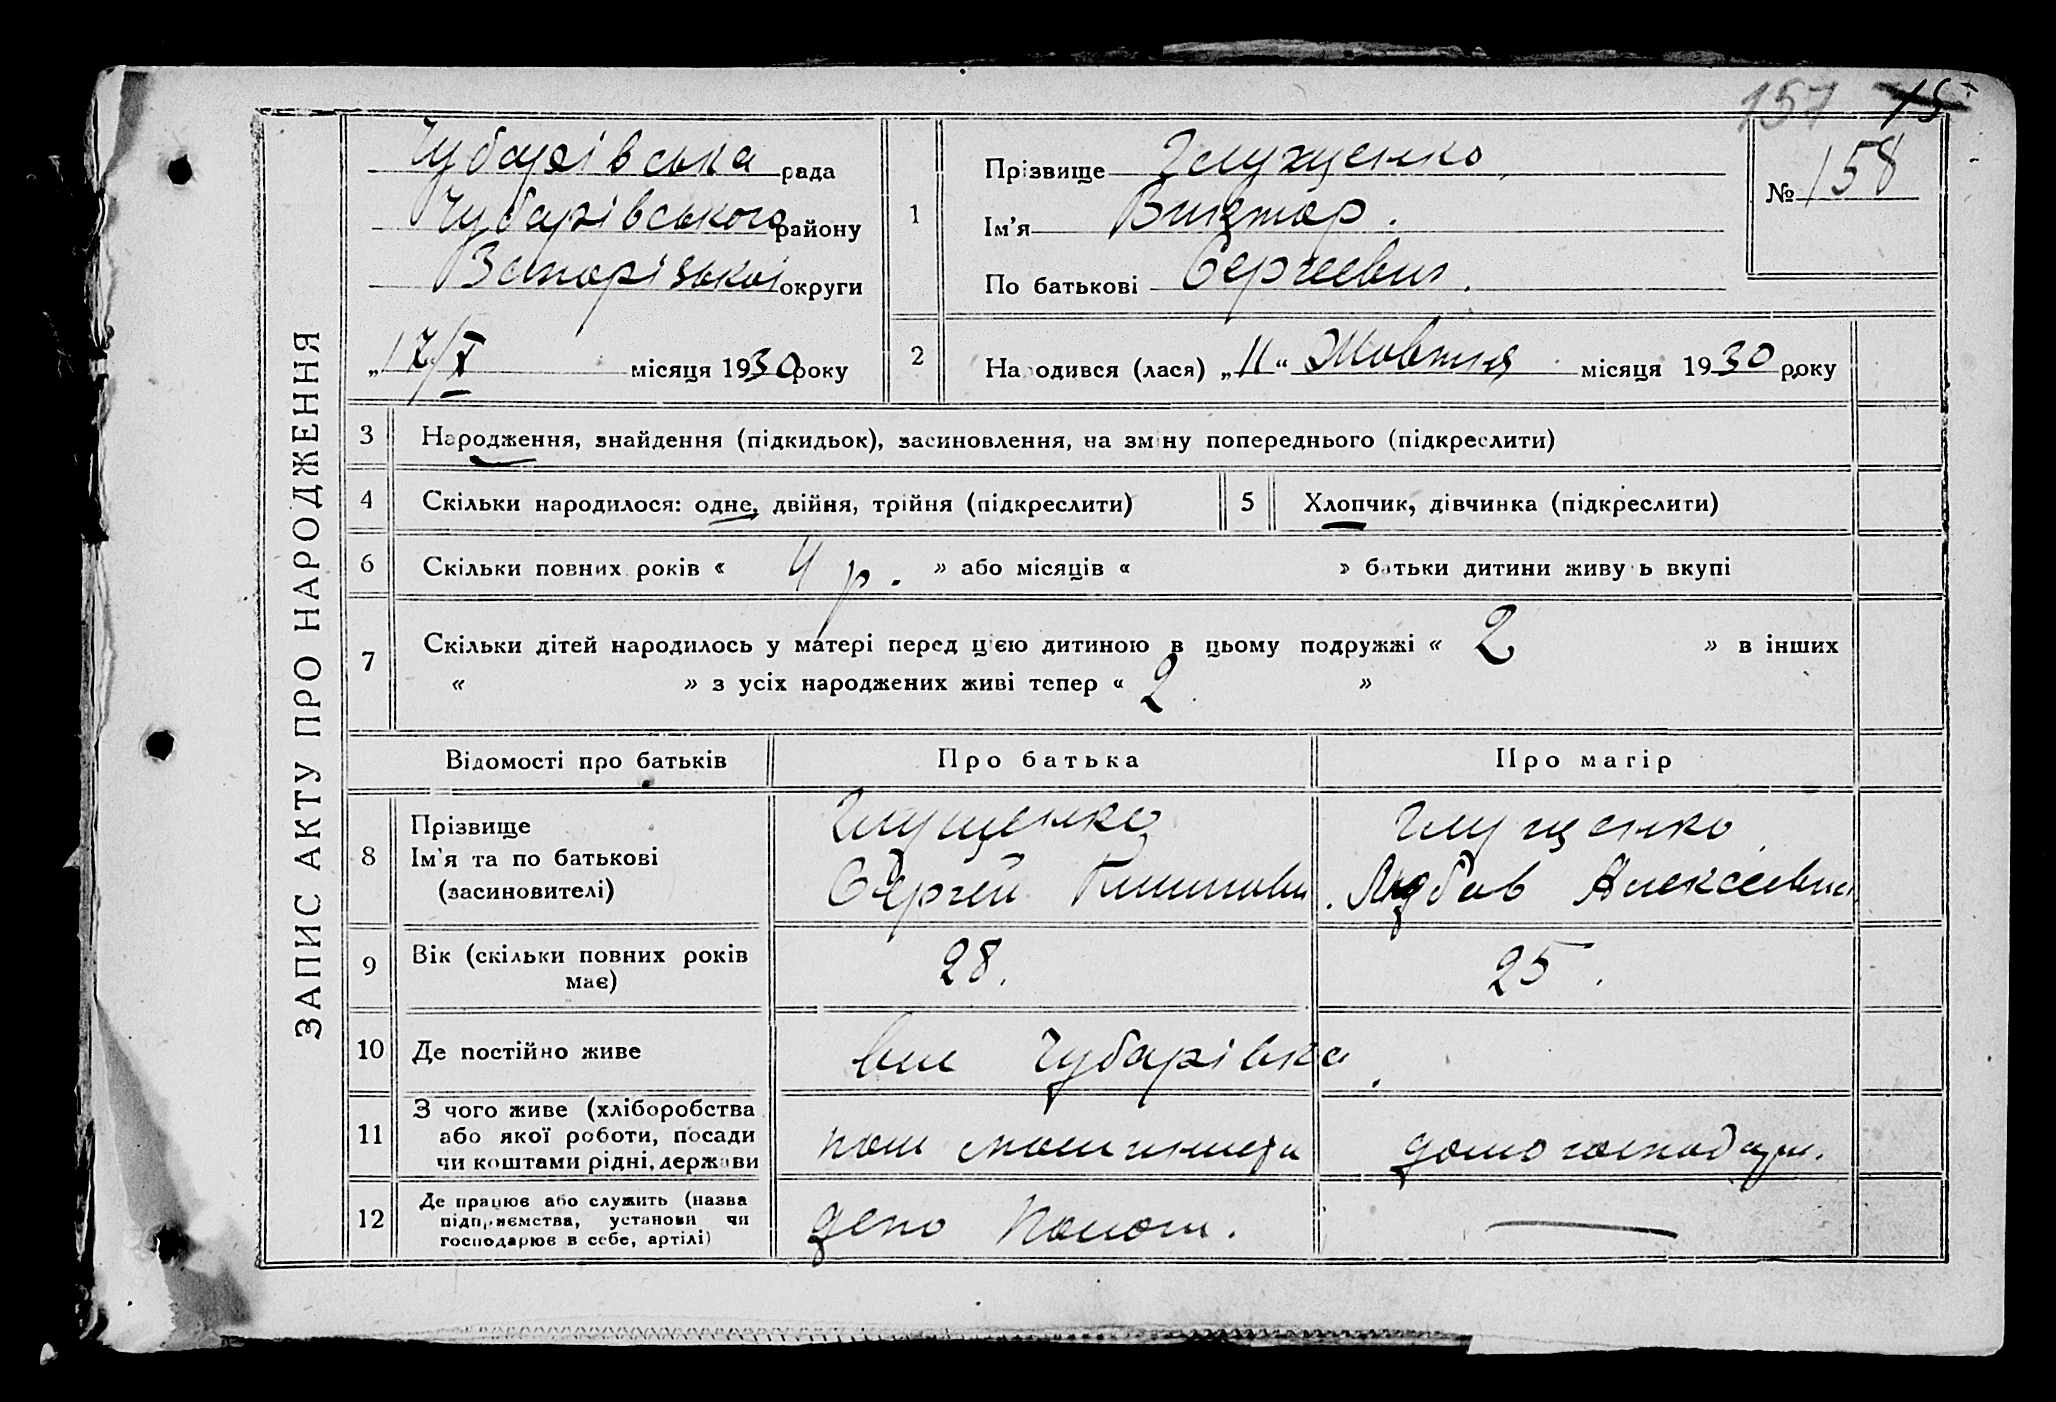 157 15
ЗАПИС АКТУ ПРО НАРОДЖЕННЯ
Чубарівська рада
Чубарівського району
Запорізької округи
„17/X місяця 1930 року
1
Прізвище Глущенко
Ім'я Виктор.
По батькові Сергеевич.
№ 158
2
Народився (лася) „11“ Жовтня місяця 1930 року
3 Народження, знайдення (підкидьок), засиновлення, на зміну попереднього (підкреслити)
4 Скільки народилося: одне, двійня, трійня (підкреслити)
5 Хлопчик, дівчинка (підкреслити)
6 Скільки повних років « 4 р. » або місяців « » батьки дитини живуть вкупі
7 Скільки дітей народилось у матері перед цією дитиною в цьому подружжі « 2 » в інших
« » з усіх народжених живі тепер « 2 »
Відомості про батьків Про батька Про матір
8 Прізвище Глущенко Глущенко
Ім'я та по батькові Сергей Любов Алексеевна
(засиновителі)
9 Вік (скільки повних років має) 28. 25.
10 Де постійно живе Чубарівка.
11 З чого живе (хліборобства
або якої роботи, посади пом машиниста домогосподар.
чи коштами рідні, держави
12 Де працює або служить (назва
підприємства, установи чи депо Полог. —
господарює в себе, артілі)